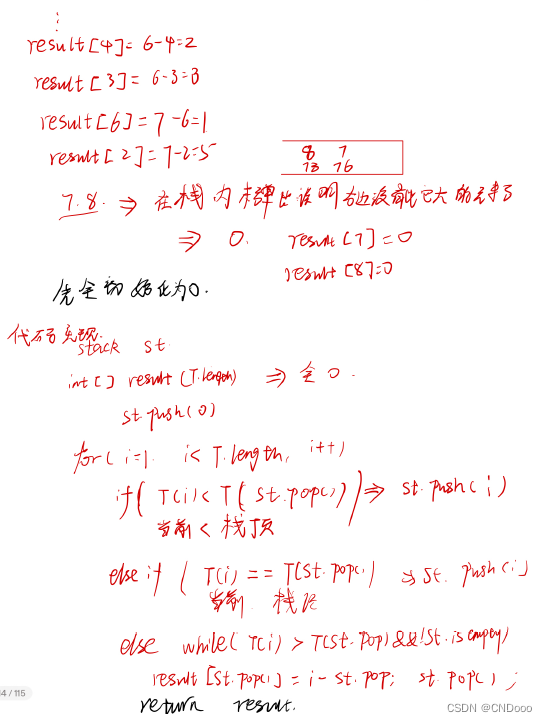 ⋮
result[4]= 6-4=2
result[3]= 6-3=3
result[6]=7-6=1
result[2]=7-2=5
8 7
73 76
7.8. ⇒ 在栈内未弹出说明右边没有比它大的元素了
⇒ 0. result[7]=0
result[8]=0
先全初始化为0.
代码实现.
stack st.
int[] result (T.length) ⇒ 全0.
st.push(0)
for( i=1. i< T.length, i++)
if( T(i)< T( st.pop() )) ⇒ st.push(i)
当前 < 栈顶
else if ( T(i) == T(st.pop() ) ⇒ st. push(i)
当前. 栈顶
else while( T(i) > T(st.pop) && !st.isempty)
result [st.pop()] = i - st.pop; st.pop();
return result.
14 / 115
CSDN @CNDooo